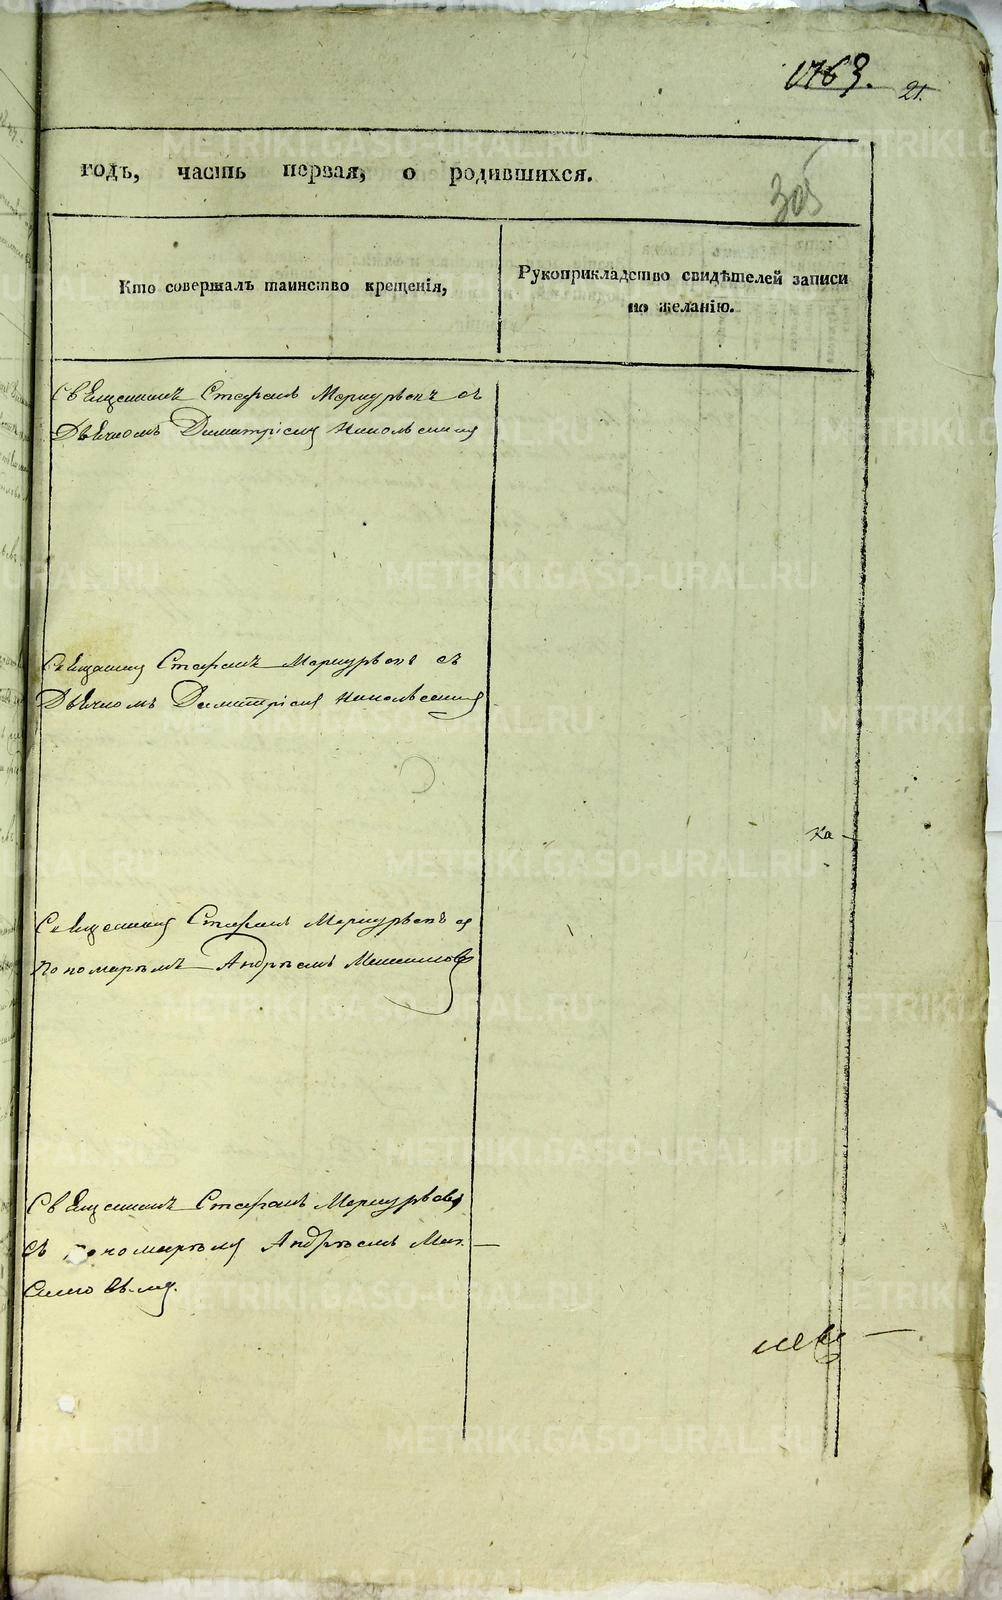 1763.
21.
годъ, часть первая, о родившихся.
305
Кто совершалъ таинство крещенія,
Рукоприкладство свидѣтелей записи
по желанію.
Священникъ Стефанъ Меркурьевъ съ
Дьячкомъ Димитріемъ Никольскимъ
Священникъ Стефанъ Меркурьевъ съ
Дьячкомъ Димитріемъ Никольскимъ
Ка
Священникъ Стефанъ Меркурьевъ съ
Пономаремъ Андреемъ
Священникъ Стефанъ Меркурьевъ
съ пономаремъ Андреемъ
METRIKI.GASO-URAL.RU